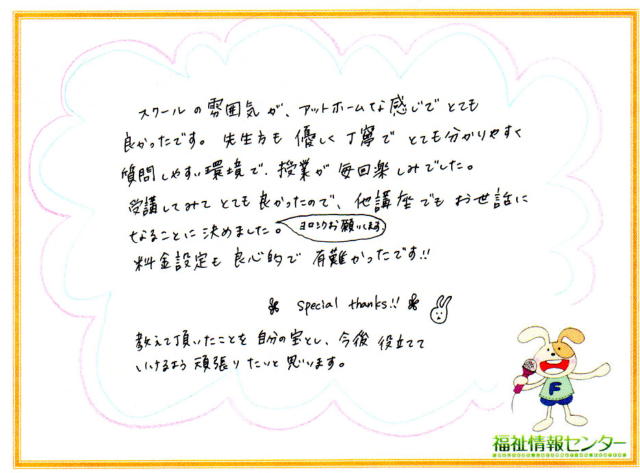 スクールの雰囲気が、アットホームな感じでとても
良かったです。先生方も優しく丁寧でとても分かりやすく
質問しやすい環境で、授業が毎回楽しみでした。
受講してみてとても良かったので、他講座でもお世話に
なることに決めました。ヨロシクお願いします。
料金設定も良心的で有難かったです!!
special thanks!!
教えて頂いたことを自分の宝とし、今後役立てて
いけるよう頑張りたいと思います。
F
福祉情報センター